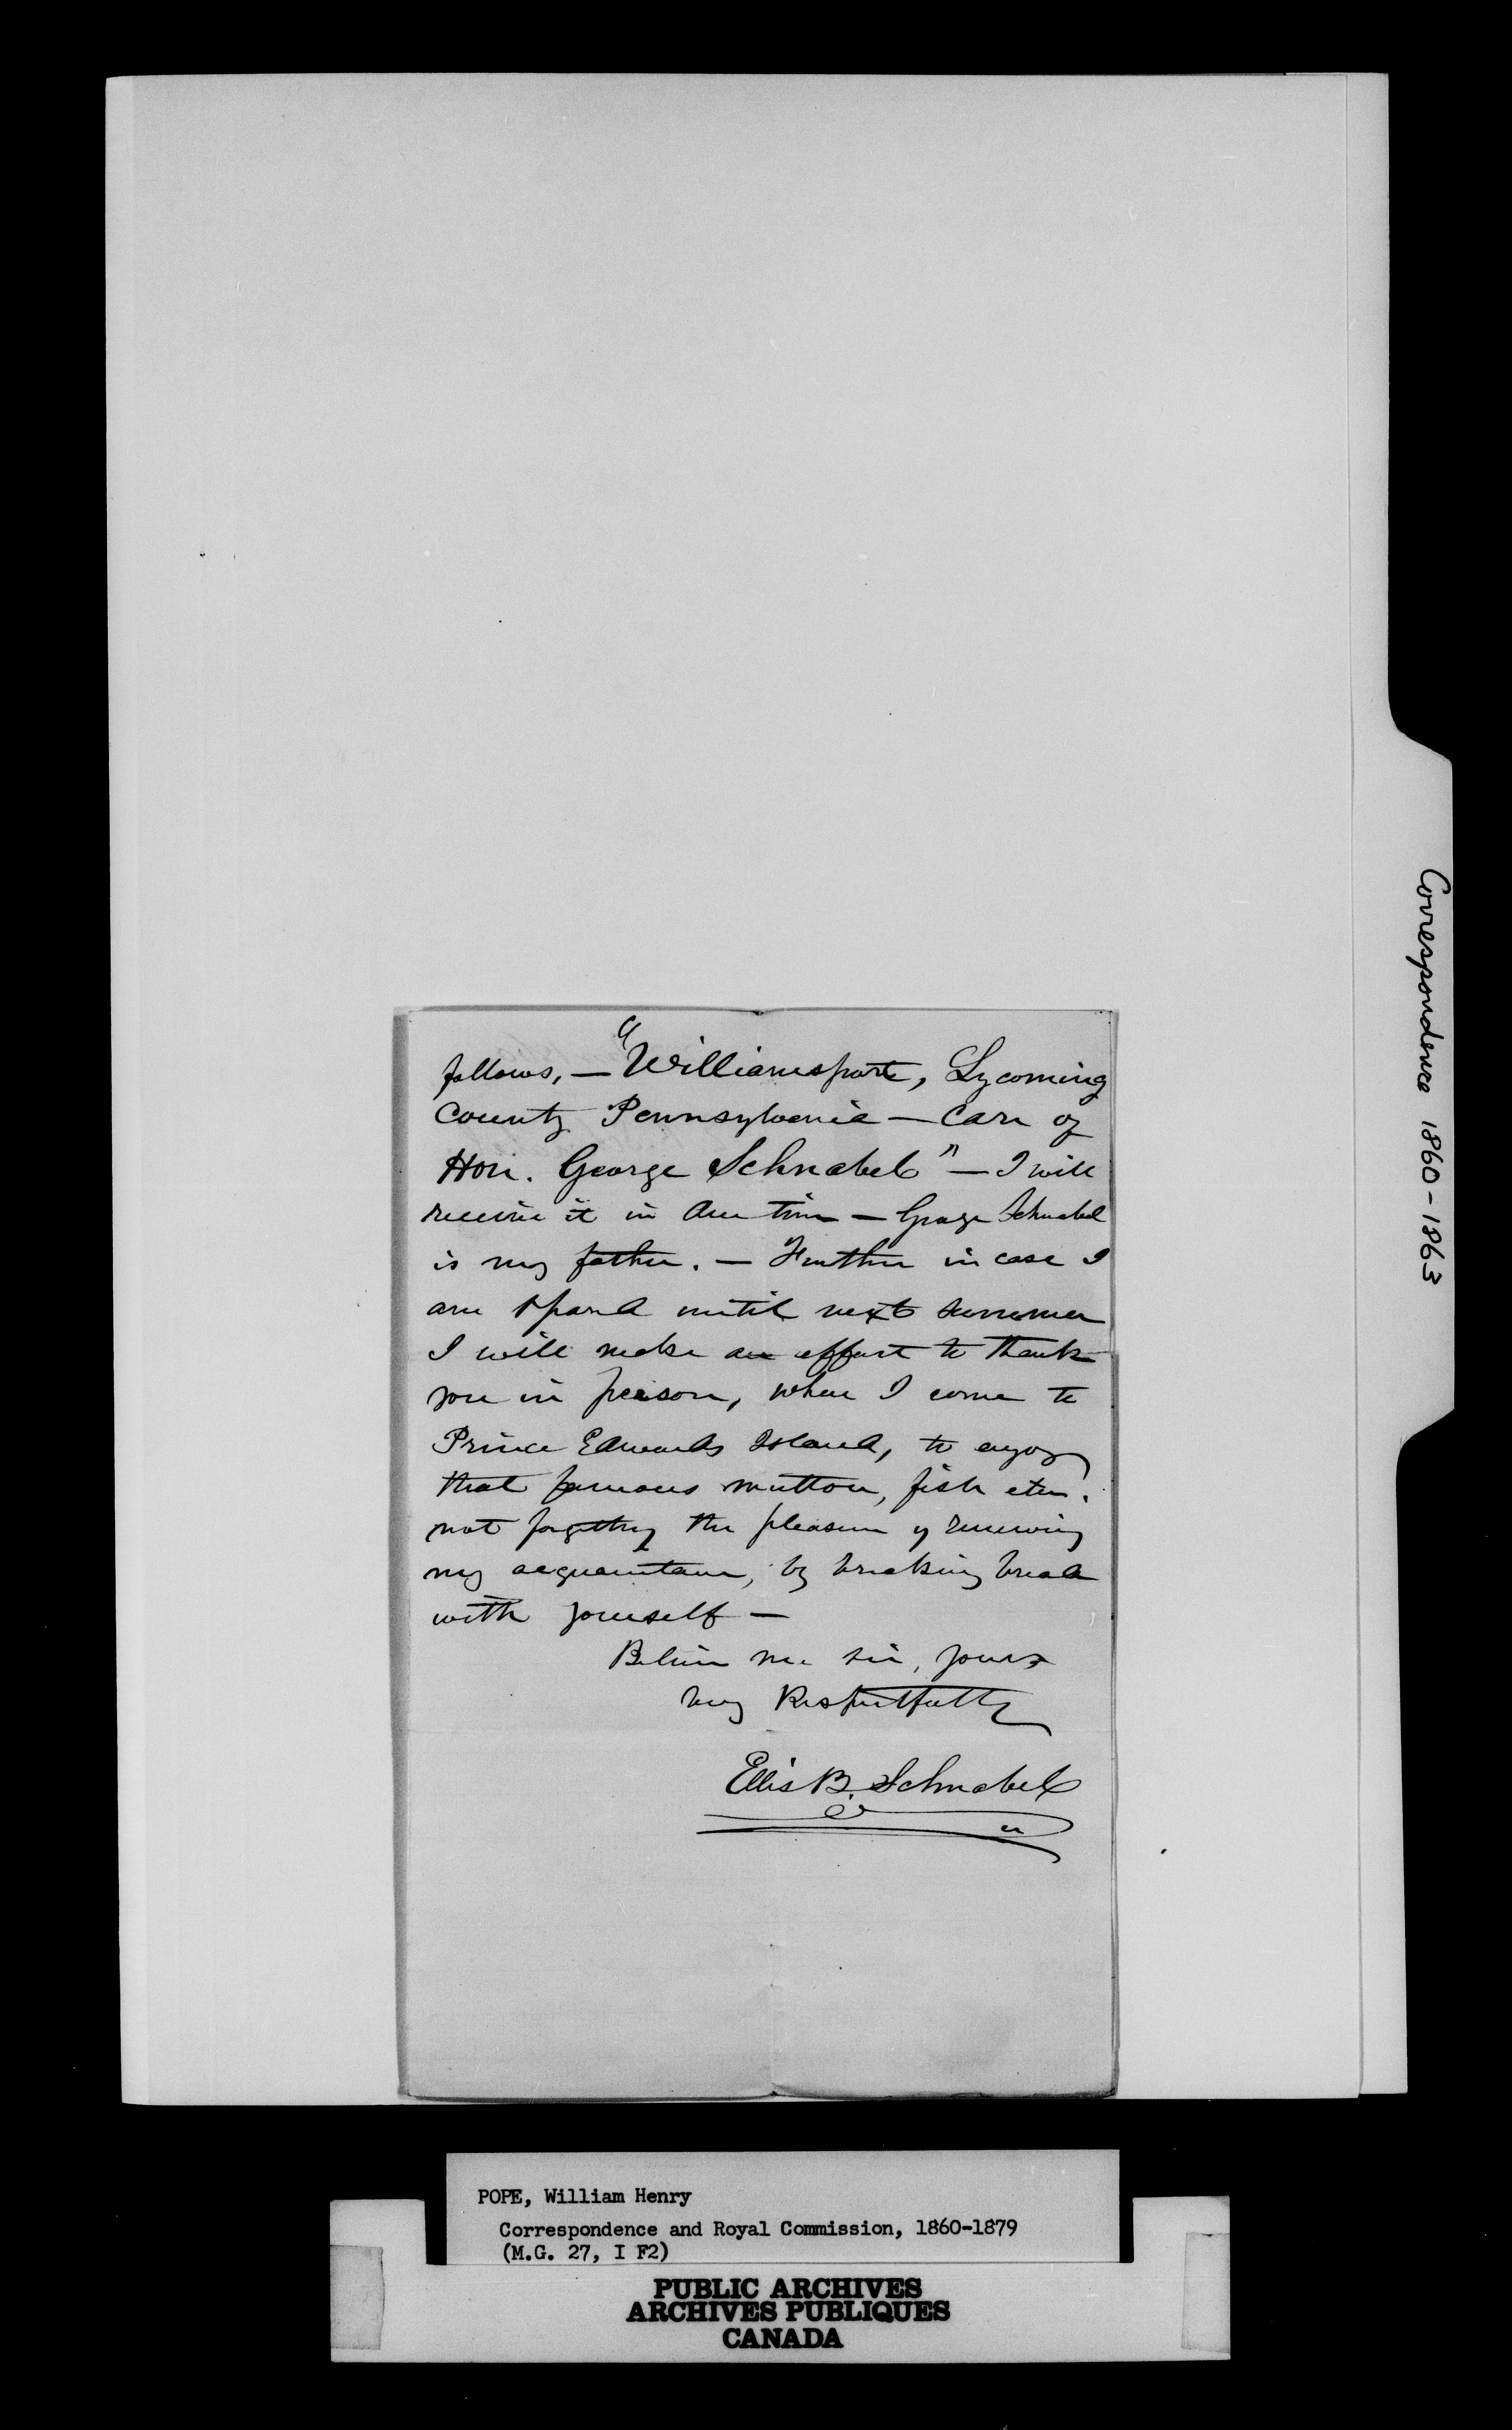 follows, — "Williamsport, Lycoming
County Pennsylvania — Care of
Hon. George Schnabel" — I will
receive it in due time — George Schnabel
is my father. — Further in case I
am spared until next summer
I will make an effort to thank
you in person, when I come to
Prince Edwards Island, to enjoy
that famous mutton, fish etc.
not forgetting the pleasure of renewing
my acquaintance, by breaking bread
with yourself —
Believe me sir, yours
very Respectfully
Ellis B. Schnabel
Correspondence 1860-1863
POPE, William Henry
Correspondence and Royal Commission, 1860-1879
(M.G. 27, I F2)
PUBLIC ARCHIVES
ARCHIVES PUBLIQUES
CANADA